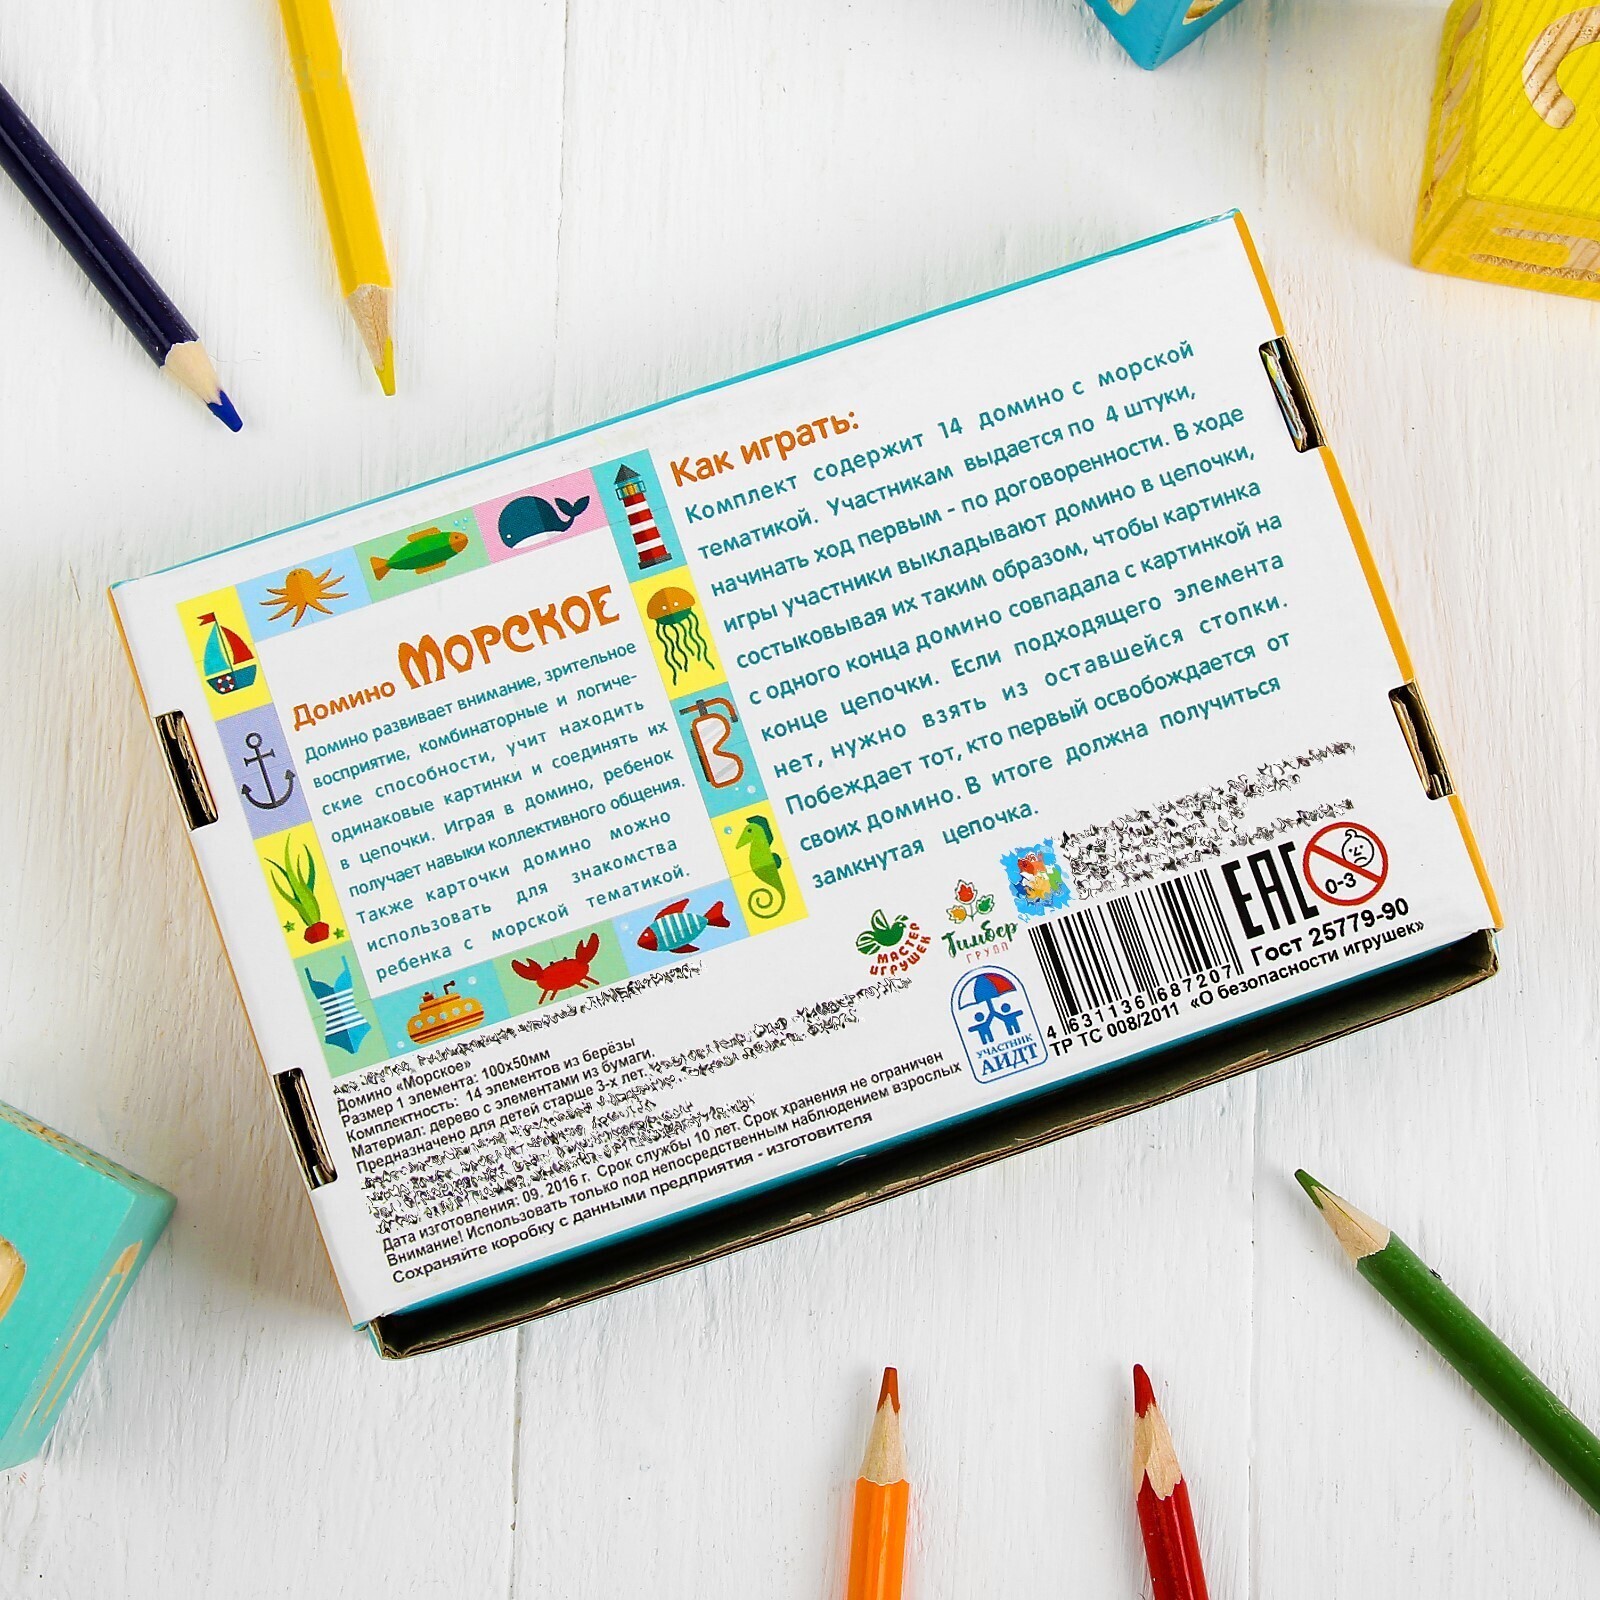 Домино МОРСКОЕ
Домино развивает внимание, зрительное
восприятие, комбинаторные и логиче-
ские способности, учит находить
одинаковые картинки и соединять их
в цепочки. Играя в домино, ребенок
получает навыки коллективного общения.
Также карточки домино можно
использовать для знакомства
ребенка с морской тематикой.
Как играть:
Комплект содержит 14 домино с морской
тематикой. Участникам выдается по 4 штуки,
начинать ход первым - по договоренности. В ходе
игры участники выкладывают домино в цепочки,
состыковывая их таким образом, чтобы картинка
с одного конца домино совпадала с картинкой на
конце цепочки. Если подходящего элемента
нет, нужно взять из оставшейся стопки.
Побеждает тот, кто первый освобождается от
своих домино. В итоге должна получиться
замкнутая цепочка.
Домино «Морское»
Размер 1 элемента: 100х50мм
Комплектность: 14 элементов из берёзы
Материал: дерево с элементами из бумаги.
Предназначено для детей старше 3-х лет.
Дата изготовления: 09. 2016 г. Срок службы 10 лет. Срок хранения не ограничен
Внимание! Использовать только под непосредственным наблюдением взрослых
Сохраняйте коробку с данными предприятия - изготовителя
МАСТЕР
ИГРУШЕК
Тимбер
ГРУПП
УЧАСТНИК
АИДТ
4 631136 687207
ЕАС
0-3
Гост 25779-90
ТР ТС 008/2011 «О безопасности игрушек»